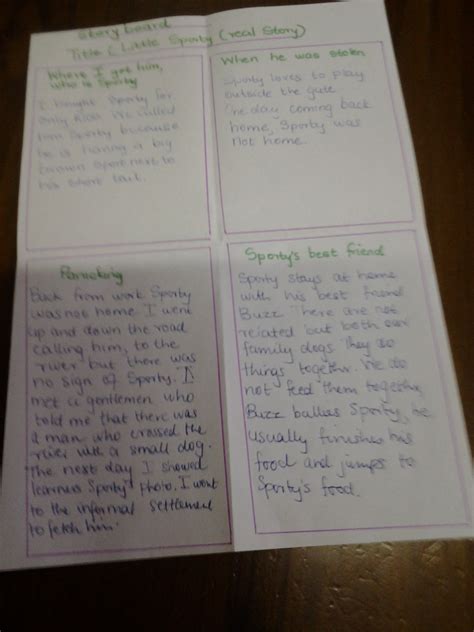 Story board
Title ( Little Sporty (real Story)
Where I got him,
who is Sporty
I bought Sporty for
only R100. We called
him Sporty because
he is having a big
brown spot next to
his short tail.
When he was stolen
Sporty loves to play
outside the gate
One day coming back
home, Sporty was
not home.
Panicking
Back from work Sporty
was not home. I went
up and down the road
calling him, to the
river but there was
no sign of Sporty. I
met a gentlemen who
told me that there was
a man who crossed the
river with a small dog.
The next day I showed
learners Sporty's photo. I went
to the informal settlement
to fetch him.
Sporty's best friend
Sporty stays at home
with his best friend
Buzz. There are not
related but both our
family dogs. They do
things together. We do
not feed them together,
Buzz bullies Sporty, he
usually finishes his
food and jumps to
Sporty's food.